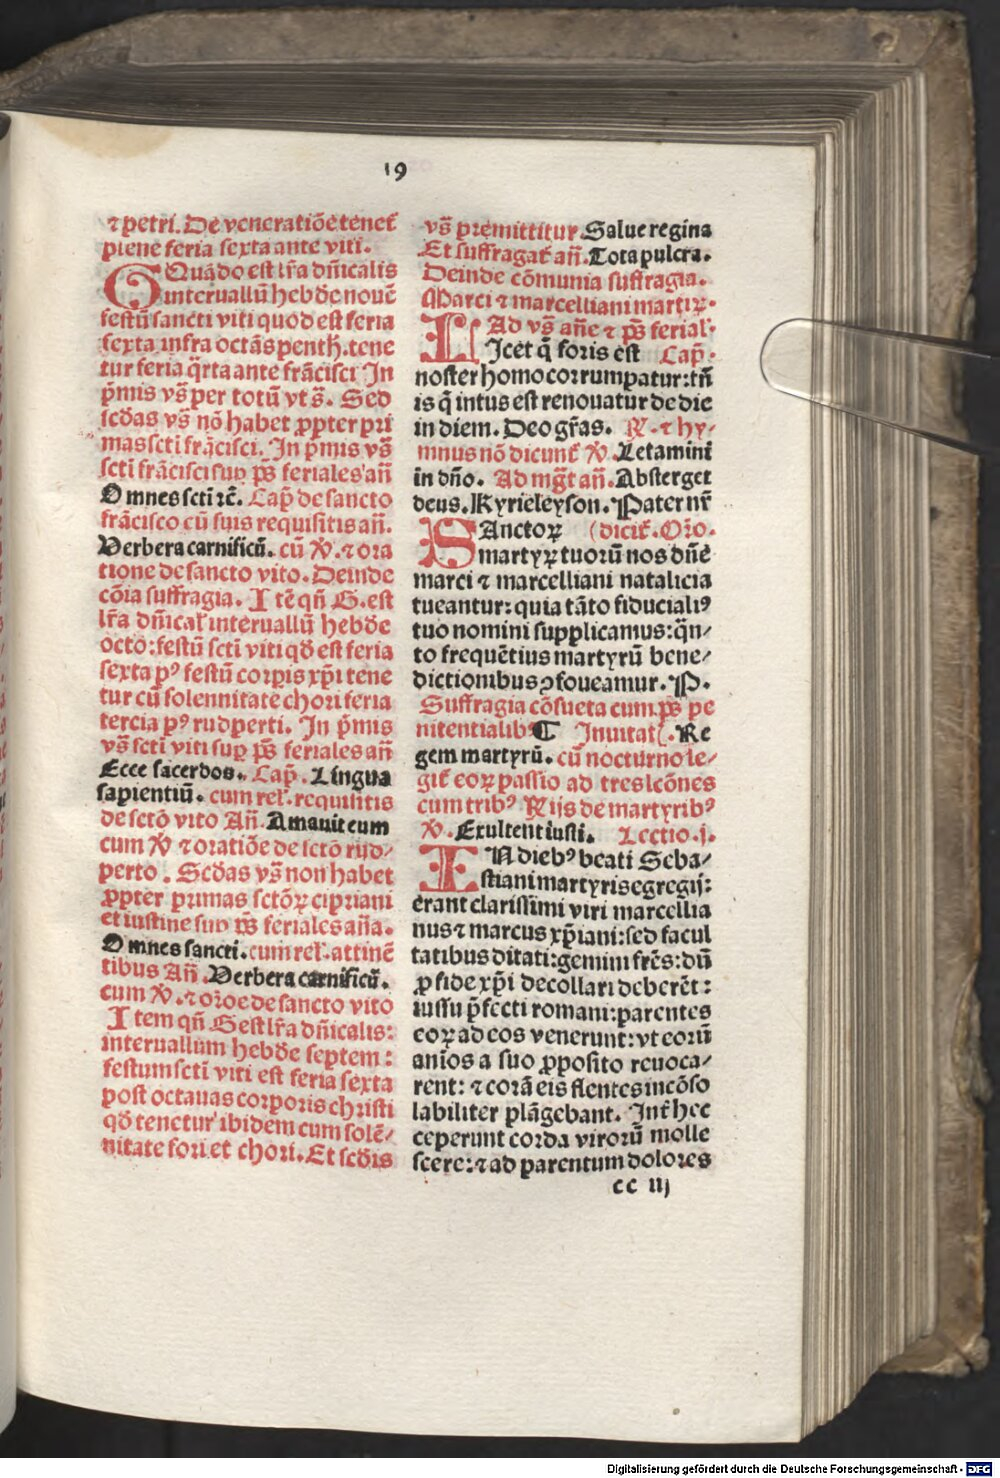 19
⁊ petri. De veneratiōe tenet᷑
plene feria sexta ante viti.
G Quādo est lr̄a dn̄icalis
interuallū hebde nouē
festū sancti viti quod est feria
sexta infra octās penth. tene
tur feria q̄rta ante frācisci In
p̄mis vs̄ per totū vt s̄. Sed
scd̄as vs̄ nō habet ꝓpter pri
mas scti frācisci. In p̄mis vs̄
scti frācisci sup ps̄ feriales an̄
Omnes scti rē. Cap̄ de sancto
frācisco cū suis requisitis an̄.
Verbera carnificū. cū v̄. ⁊ ora
tione de sancto vito. Deinde
cōia suffragia. Itē qn̄ G. est
lr̄a dn̄ical' interuallū hebde
octo: festū scti viti qd̄ est feria
sexta pꝰ festū corp̄is xp̄i tene
tur cū solennitate chori feria
tercia pꝰ rudperti. In p̄mis
vs̄ scti viti sup ps̄ feriales an̄
Ecce sacerdos. Cap̄. Lingua
sapientiū. cum rel'. requisitis
de sctō vito An̄. Amauit eum
cum v̄ ⁊ oratiōe de sctō rud⸗
perto. Scd̄as vs̄ non habet
ꝓpter primas sctōꝝ cipriani
et iustine sup ps̄ feriales an̄a.
Omnes sancti. cum rel'. attinē
tibus An̄. Verbera carnificū.
cum v̄. ⁊ orōe de sancto vito
Item qn̄ G est lr̄a dn̄icalis:
interuallum hebde septem:
festum scti viti est feria sexta
post octauas corporis christi
qd̄ tenetur ibidem cum solē⸗
nitate fori et chori. Et scd̄is
vs̄ premittitur Salue regina
Et suffragat᷑ an̄. Tota pulcra.
Deinde cōmunia suffragia.
Marci ⁊ marcelliani martiꝝ.
Ad vs̄ an̄e ⁊ ps̄ ferial'.
LIcet q̄ foris est Cap̄.
noster homo corrumpatur: tn̄
is q̄ intus est renouatur de die
in diem. Deo gr̄as. R̄. ⁊ hy⸗
mnus nō dicunt᷑ v̄. Letamini
in dn̄o. Ad mgt̄ an̄. Absterget
deus. Kyrieleyson. Pater nr̄
SAnctoꝝ (dicit᷑. Or̄o.
martyꝝ tuorū nos dn̄e
marci ⁊ marcelliani natalicia
tueantur: quia tāto fiducialiꝰ
tuo nomini supplicamus: qn̄⸗
to frequētius martyrū bene⸗
dictionibus ꝯfoueamur. P.
Suffragia cōsueta cum ps̄ pe
nitentialibꝰ ¶ Inuitat(. Re
gem martyrū. cū nocturno le⸗
git᷑ eoꝝ passio ad tres lcōnes
cum tribꝰ R̄ijs de martyribꝰ
v̄. Exultent iusti. Lectio .j.
IN diebꝰ beati Seba⸗
stiani martyris egregij:
erant clarissimi viri marcellia
nus ⁊ marcus xp̄iani: sed facul
tatibus ditati: gemini frēs: dū
ꝓ fide xp̄i decollari deberēt:
iussu p̄fecti romani: parentes
eoꝝ ad eos venerunt: vt eorū
anīos a suo ꝓposito reuoca⸗
rent: ⁊ corā eis flentes incōso
labiliter plāgebant. Int᷑ hec
ceperunt corda virorū molle
scere: ⁊ ad parentum dolores
cc iij
Digitalisierung gefördert durch die Deutsche Forschungsgemeinschaft - DFG